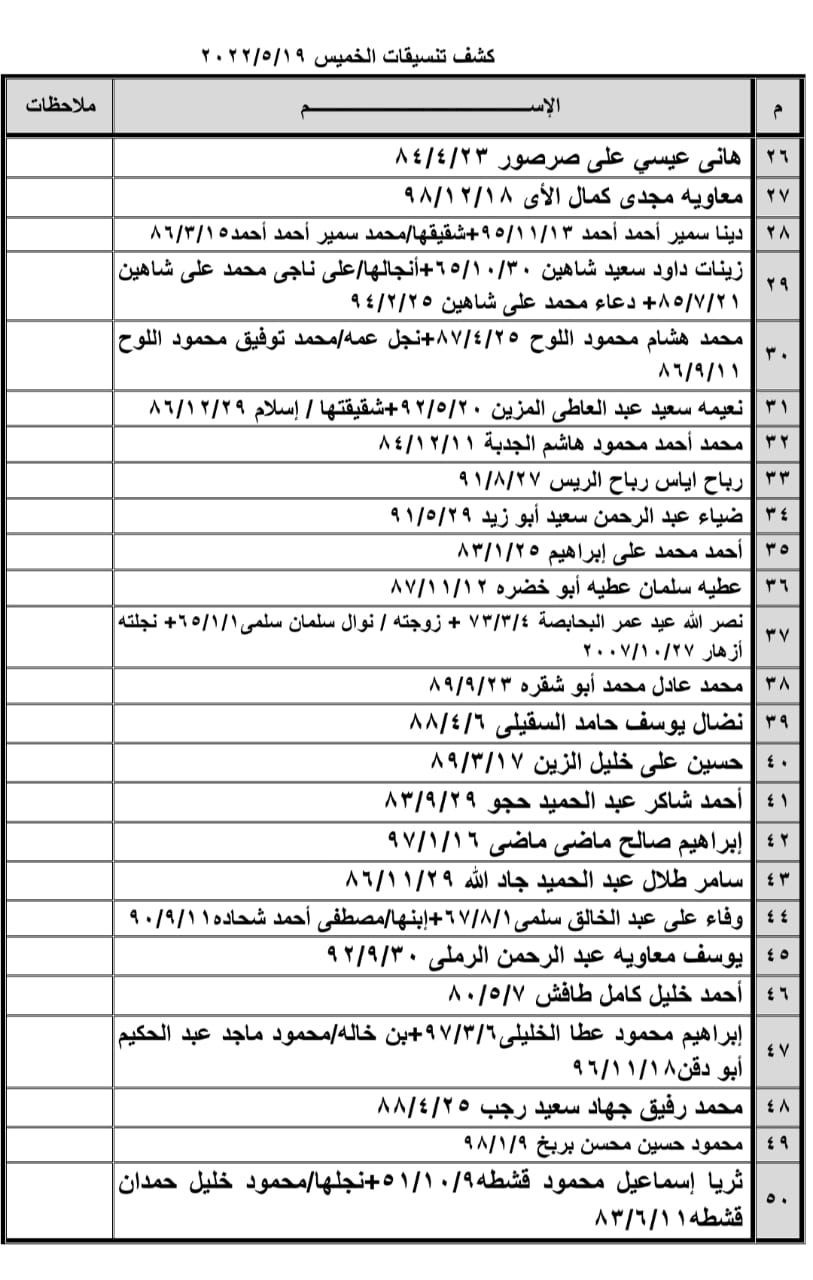 كشف تنسيقات الخميس ٢٠٢٢/٥/١٩
م الإســـــــم ملاحظات
٢٦ هانى عيسي على صرصور ٨٤/٤/٢٣
٢٧ معاويه مجدى كمال الأى ٩٨/١٢/١٨
٢٨ دينا سمير أحمد أحمد ٩٥/١١/١٣+شقيقها/محمد سمير أحمد أحمد٨٦/٣/١٥
٢٩ زينات داود سعيد شاهين ٦٥/١٠/٣٠+أنجالها/على ناجى محمد على شاهين
٨٥/٧/٢١+ دعاء محمد على شاهين ٩٤/٢/٢٥
٣٠ محمد هشام محمود اللوح ٨٧/٤/٢٥+نجل عمه/محمد توفيق محمود اللوح
٨٦/٩/١١
٣١ نعيمه سعيد عبد العاطى المزين ٩٢/٥/٢٠+شقيقتها / إسلام ٨٦/١٢/٢٩
٣٢ محمد أحمد محمود هاشم الجدبة ٨٤/١٢/١١
٣٣ رباح اياس رباح الريس ٩١/٨/٢٧
٣٤ ضياء عبد الرحمن سعيد أبو زيد ٩١/٥/٢٩
٣٥ أحمد محمد على إبراهيم ٨٣/١/٢٥
٣٦ عطيه سلمان عطيه أبو خضره ٨٧/١١/١٢
٣٧ نصر الله عيد عمر البحابصة ٧٣/٣/٤ + زوجته / نوال سلمان سلمى٦٥/١/١+ نجلته
أزهار ٢٠٠٧/١٠/٢٧
٣٨ محمد عادل محمد أبو شقره ٨٩/٩/٢٣
٣٩ نضال يوسف حامد السقيلى ٨٨/٤/٦
٤٠ حسين على خليل الزين ٨٩/٣/١٧
٤١ أحمد شاكر عبد الحميد حجو ٨٣/٩/٢٩
٤٢ إبراهيم صالح ماضى ماضى ٩٧/١/١٦
٤٣ سامر طلال عبد الحميد جاد الله ٨٦/١١/٢٩
٤٤ وفاء على عبد الخالق سلمى٦٧/٨/١+إبنها/مصطفى أحمد شحاده٩٠/٩/١١
٤٥ يوسف معاويه عبد الرحمن الرملى ٩٢/٩/٣٠
٤٦ أحمد خليل كامل طافش ٨٠/٥/٧
٤٧ إبراهيم محمود عطا الخليلى٩٧/٣/٦+بن خاله/محمود ماجد عبد الحكيم
أبو دقن٩٦/١١/١٨
٤٨ محمد رفيق جهاد سعيد رجب ٨٨/٤/٢٥
٤٩ محمود حسين محسن بربخ ٩٨/١/٩
٥٠ ثريا إسماعيل محمود قشطه٥١/١٠/٩+نجلها/محمود خليل حمدان
قشطه٨٣/٦/١١